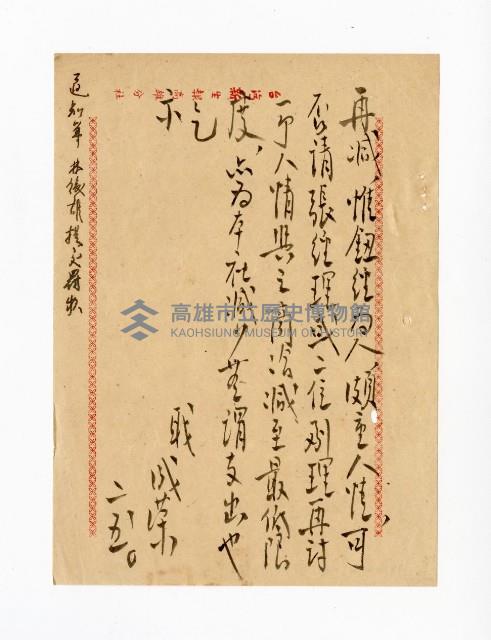 台灣新生報高雄分社
再減，惟鈕經為人，頗重人情，可
否請張經理或二位副理再討
一下人情與之商洽減至最低限
度，亦為本社減少無謂支出也
乞
示
職 成榮
二、五、
通知單 林後雄
高雄市立歷史博物館
KAOHSIUNG MUSEUM OF HISTORY